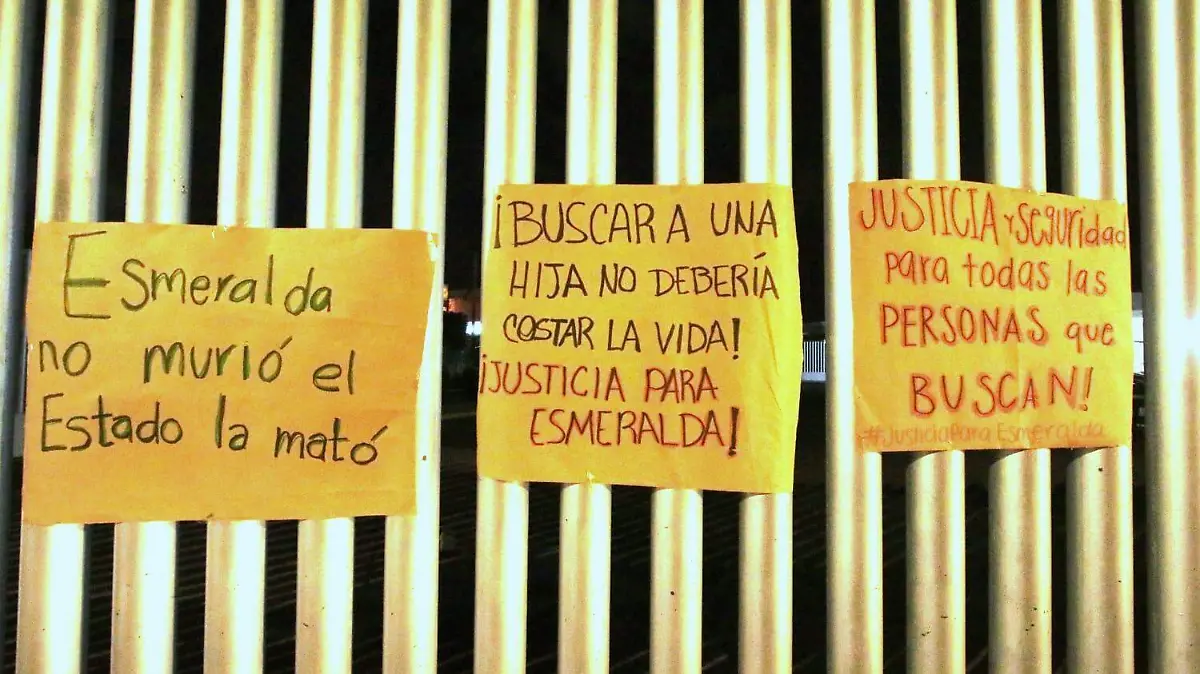 Esmeralda
no murió el
Estado la mató
¡BUSCAR A UNA
HIJA NO DEBERÍA
COSTAR LA VIDA!
¡JUSTICIA PARA
ESMERALDA!
JUSTICIA y seguridad
para todas las
PERSONAS que
BUSCAN!
#JusticiaPara Esmeralda